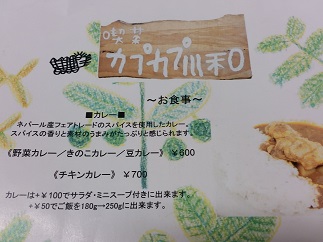 喫茶
カプカプ川和
～お食事～
■カレー■
ネパール産フェアトレードのスパイスを使用したカレー。
スパイスの香りと素材のうまみがたっぷりと感じられます。
《野菜カレー／きのこカレー／豆カレー》 ￥600
《チキンカレー》 ￥700
カレーは＋￥100でサラダ・ミニスープ付きに出来ます。
＋￥50でご飯を180g→250gに出来ます。